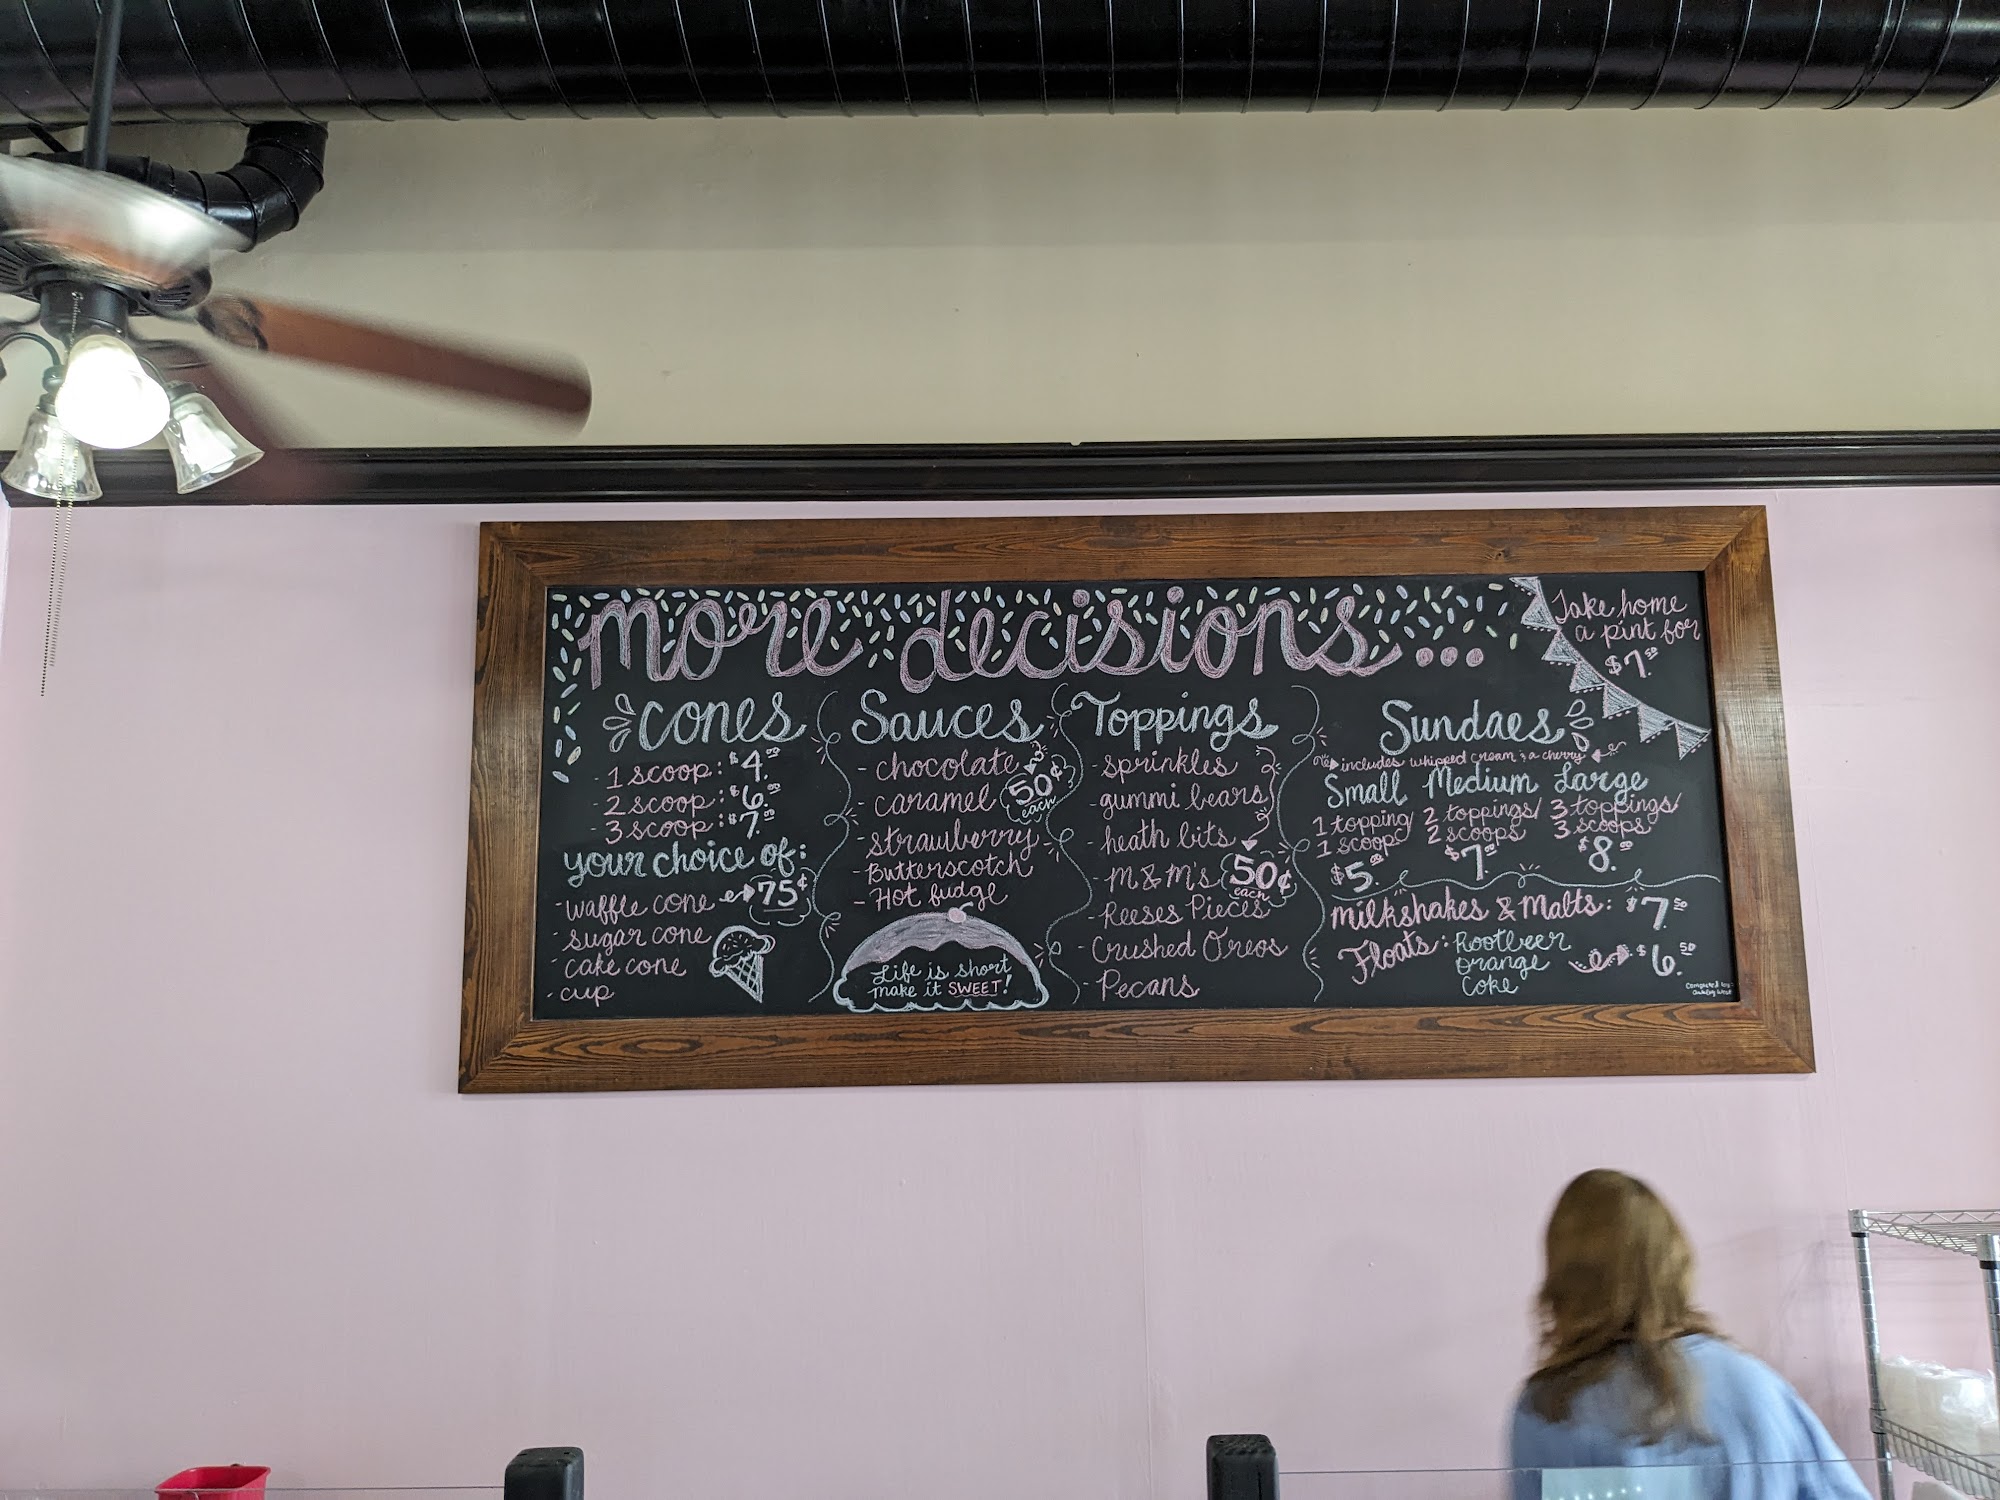 more decisions...
Take home
a pint for
$7.50
Cones
- 1 scoop: $4.00
- 2 scoop: $6.00
- 3 scoop: $7.00
your choice of:
- waffle cone 75¢
- sugar cone
- cake cone
- cup
Sauces
- chocolate
- caramel
50¢
each
- strawberry
- Butterscotch
- Hot fudge
Life is short
make it SWEET!
Toppings
- sprinkles
- gummi bears
- heath bits
- M&M's
50¢
each
- Reeses Pieces
- Crushed Oreos
- Pecans
Sundaes
includes whipped cream & a cherry
Small
1 topping/
1 scoop
$5.00
Medium
2 toppings/
2 scoops
$7.00
Large
3 toppings/
3 scoops
$8.00
Milkshakes & Malts: $7.50
Floats: Rootbeer
Orange
Coke
$6.50